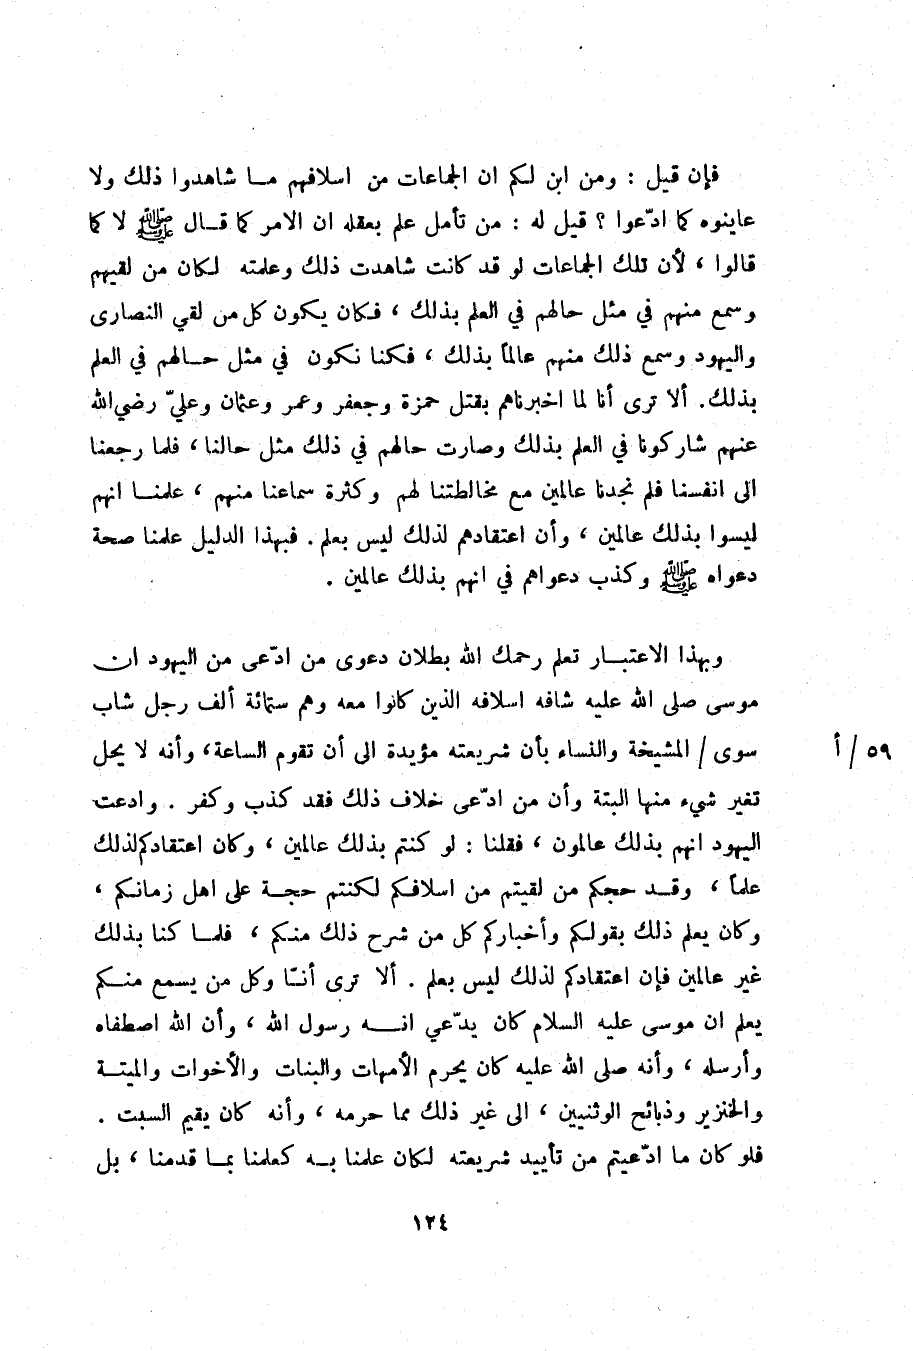 فإن قيل : ومن ابن لكم ان الجماعات من اسلافهم مــا شاهدوا ذلك ولا
عاينوه كما ادّعوا ؟ قيل له : من تأمل علم بعقله ان الامر كما قــال ﷺ لا كما
قالوا ، لأن تلك الجماعات لو قد كانت شاهدت ذلك وعلمته لكان من لقيهم
وسمع منهم في مثل حالهم في العلم بذلك ، فكان يكون كل من لقي النصارى
واليهود وسمع ذلك منهم عالماً بذلك ، فكنا نكون في مثل حــالهم في العلم
بذلك. ألا ترى أنا لما اخبرناهم بقتل حمزة وجعفر وعمر وعثمان وعليّ رضي الله
عنهم شاركونا في العلم بذلك وصارت حالهم في ذلك مثل حالنا ، فلما رجعنا
الى انفسنا فلم نجدنا عالمين مع مخالطتنا لهم وكثرة سماعنا منهم ، علمنــا انهم
ليسوا بذلك عالمين ، وأن اعتقادهم لذلك ليس بعلم . فبهذا الدليل علمنا صحة
دعواه ﷺ وكذب دعواهم في انهم بذلك عالمين .
وبهذا الاعتبــار تعلم رحمك الله بطلان دعوى من ادّعى من اليهود ان
موسى صلى الله عليه شافه اسلافه الذين كانوا معه وهم ستمائة ألف رجل شاب
سوى / المشيخة والنساء بأن شريعته مؤيدة الى أن تقوم الساعة، وأنه لا يحل
٥٩ / أ
تغير شيء منها البتة وأن من ادّعى خلاف ذلك فقد كذب وكفر . وادعت
اليهود انهم بذلك عالمون ، فقلنا : لو كنتم بذلك عالمين ، وكان اعتقادكم لذلك
علماً ، وقــد حجكم من لقيتم من اسلافكم لكنتم حجــة على اهل زمانكم ،
وكان يعلم ذلك بقولكم وأخباركم كل من شرح ذلك منكم ، فلمــا كنا بذلك
غير عالمين فإن اعتقادكم لذلك ليس بعلم . ألا ترى أنــّا وكل من يسمع منــكم
يعلم ان موسى عليه السلام كان يدّعي انــه رسول الله ، وأن الله اصطفاه
وأرسله ، وأنه صلى الله عليه كان يحرم الأمهات والبنات والأخوات والميتــة
والخنزير وذبائح الوثنيين ، الى غير ذلك مما حرمه ، وأنه كان يقيم السبت .
فلو كان ما ادّعيتم من تأييد شريعته لكان علمنا بــه كعلمنا بمــا قدمنا ، بل
١٢٤